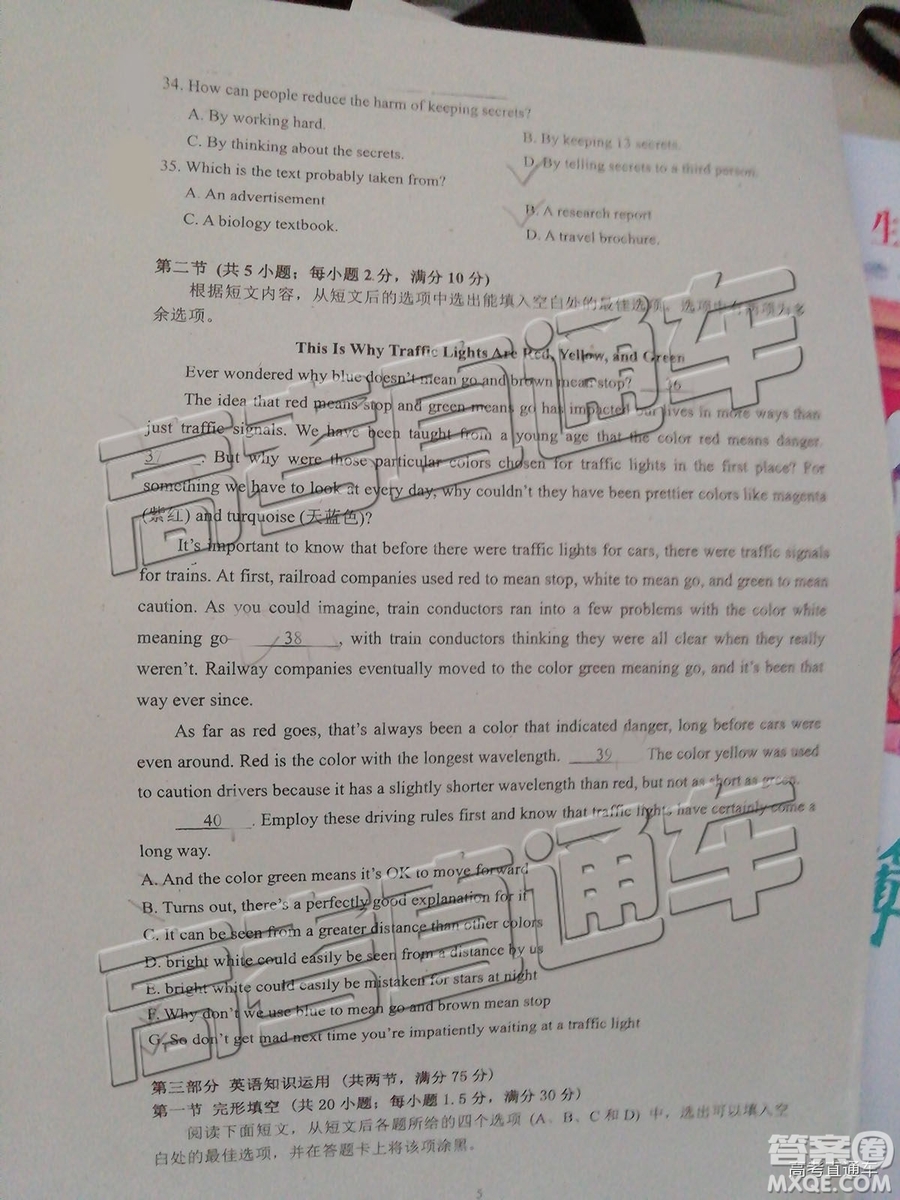 34. How can people reduce the harm of keeping secrets?
A. By working hard.
B. By keeping 13 secrets.
C. By thinking about the secrets.
D. By telling secrets to a third person.
35. Which is the text probably taken from?
A. An advertisement
B. A research report
C. A biology textbook.
D. A travel brochure.
第二节 (共5小题；每小题2分，满分10分)
根据短文内容，从短文后的选项中选出能填入空白处的最佳选项。选项中有两项为多
余选项。
This Is Why Traffic Lights Are Red, Yellow, and Green
Ever wondered why blue doesn't mean go and brown mean stop? 36
The idea that red means stop and green means go has impacted our lives in more ways than
just traffic signals. We have been taught from a young age that the color red means danger.
37 . But why were those particular colors chosen for traffic lights in the first place? For
something we have to look at every day, why couldn't they have been prettier colors like magenta
(紫红) and turquoise (天蓝色)?
It's important to know that before there were traffic lights for cars, there were traffic signals
for trains. At first, railroad companies used red to mean stop, white to mean go, and green to mean
caution. As you could imagine, train conductors ran into a few problems with the color white
meaning go 38 , with train conductors thinking they were all clear when they really
weren't. Railway companies eventually moved to the color green meaning go, and it's been that
way ever since.
As far as red goes, that's always been a color that indicated danger, long before cars were
even around. Red is the color with the longest wavelength. 39 The color yellow was used
to caution drivers because it has a slightly shorter wavelength than red, but not as short as green.
40 . Employ these driving rules first and know that traffic lights have certainly come a
long way.
A. And the color green means it's OK to move forward
B. Turns out, there's a perfectly good explanation for it
C. it can be seen from a greater distance than other colors
D. bright white could easily be seen from a distance by us
E. bright white could easily be mistaken for stars at night
F. Why don't we use blue to mean go and brown mean stop
G. So don't get mad next time you're impatiently waiting at a traffic light
第三部分 英语知识运用 (共两节，满分75分)
第一节 完形填空 (共20小题；每小题1.5分，满分30分)
阅读下面短文，从短文后各题所给的四个选项 (A、B、C和D) 中，选出可以填入空
白处的最佳选项，并在答题卡上将该项涂黑。
5
高考直通车
高考直通车
答案圈
高考直通车
MXQE.COM
生